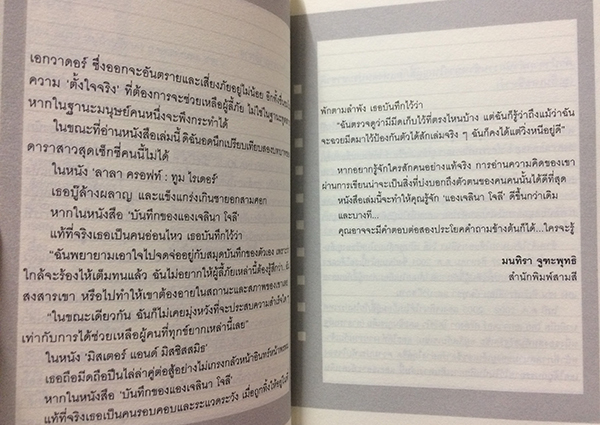 เอกวาดอร์ ซึ่งออกจะอันตรายและเสี่ยงภัยอยู่ไม่น้อย อีกทั้งยัง
ความ ‘ตั้งใจจริง’ ที่ต้องการจะช่วยเหลือผู้ลี้ภัย ไม่ใช่ในฐานะ
หากในฐานะมนุษย์คนหนึ่งจะพึงกระทำได้
ในขณะที่อ่านหนังสือเล่มนี้ ดิฉันอดนึกเปรียบเทียบสองบทบาทของ
ดาราสาวสุดเซ็กซี่คนนี้ไม่ได้
ในหนัง ‘ลาลา ครอฟท์ : ทูม ไรเดอร์’
เธอบู๊ล้างผลาญ และแข็งแกร่งเกินชายอกสามศอก
หากในหนังสือ ‘บันทึกของแองเจลินา โจลี’
แท้ที่จริงเธอเป็นคนอ่อนไหว เธอบันทึกไว้ว่า
“ฉันพยายามเอาใจไปจดจ่ออยู่กับสมุดบันทึกของตัวเอง เพราะ
ใกล้จะร้องไห้เต็มทนแล้ว ฉันไม่อยากให้ผู้ลี้ภัยเหล่านี้ต้องรู้สึกว่า
สงสารเขา หรือไปทำให้เขาต้องอายในสถานะและสภาพของเขา
“ในขณะเดียวกัน ฉันก็ไม่เคยมุ่งหวังที่จะประสบความสำเร็จใด ๆ
เท่ากับการได้ช่วยเหลือผู้คนที่ทุกข์ยากเหล่านี้เลย”
ในหนัง ‘มิสเตอร์ แอนด์ มิสซิสสมิธ’
เธอถือมีดถือปืนไล่ล่าคู่ต่อสู้อย่างไม่เกรงกลัวหน้าอินทร์หน้าพรหม
หากในหนังสือ ‘บันทึกของแองเจลินา โจลี’
แท้ที่จริงเธอเป็นคนรอบคอบและระแวดระวัง เมื่อถูกทิ้งให้อยู่ใน
พักตามลำพัง เธอบันทึกไว้ว่า
“ฉันตรวจดูว่ามีมีดเก็บไว้ที่ตรงไหนบ้าง แต่ฉันก็รู้ว่าถึงแม้ว่าฉัน
จะฉวยมีดมาไว้ป้องกันตัวได้สักเล่มจริง ๆ ฉันก็คงได้แต่วิ่งหนีอยู่ดี”
หากอยากรู้จักใครสักคนอย่างแท้จริง การอ่านความคิดของเขา
ผ่านการเขียนน่าจะเป็นสิ่งที่บ่งบอกถึงตัวตนของคนคนนั้นได้ดีที่สุด
หนังสือเล่มนี้จะทำให้คุณรู้จัก ‘แองเจลินา โจลี’ ดีขึ้นกว่าเดิม
และบางที...
คุณอาจจะมีคำตอบต่อสองประโยคคำถามข้างต้นก็ได้...ใครจะรู้
มนทิรา จูฑะพุทธิ
สำนักพิมพ์สามสี